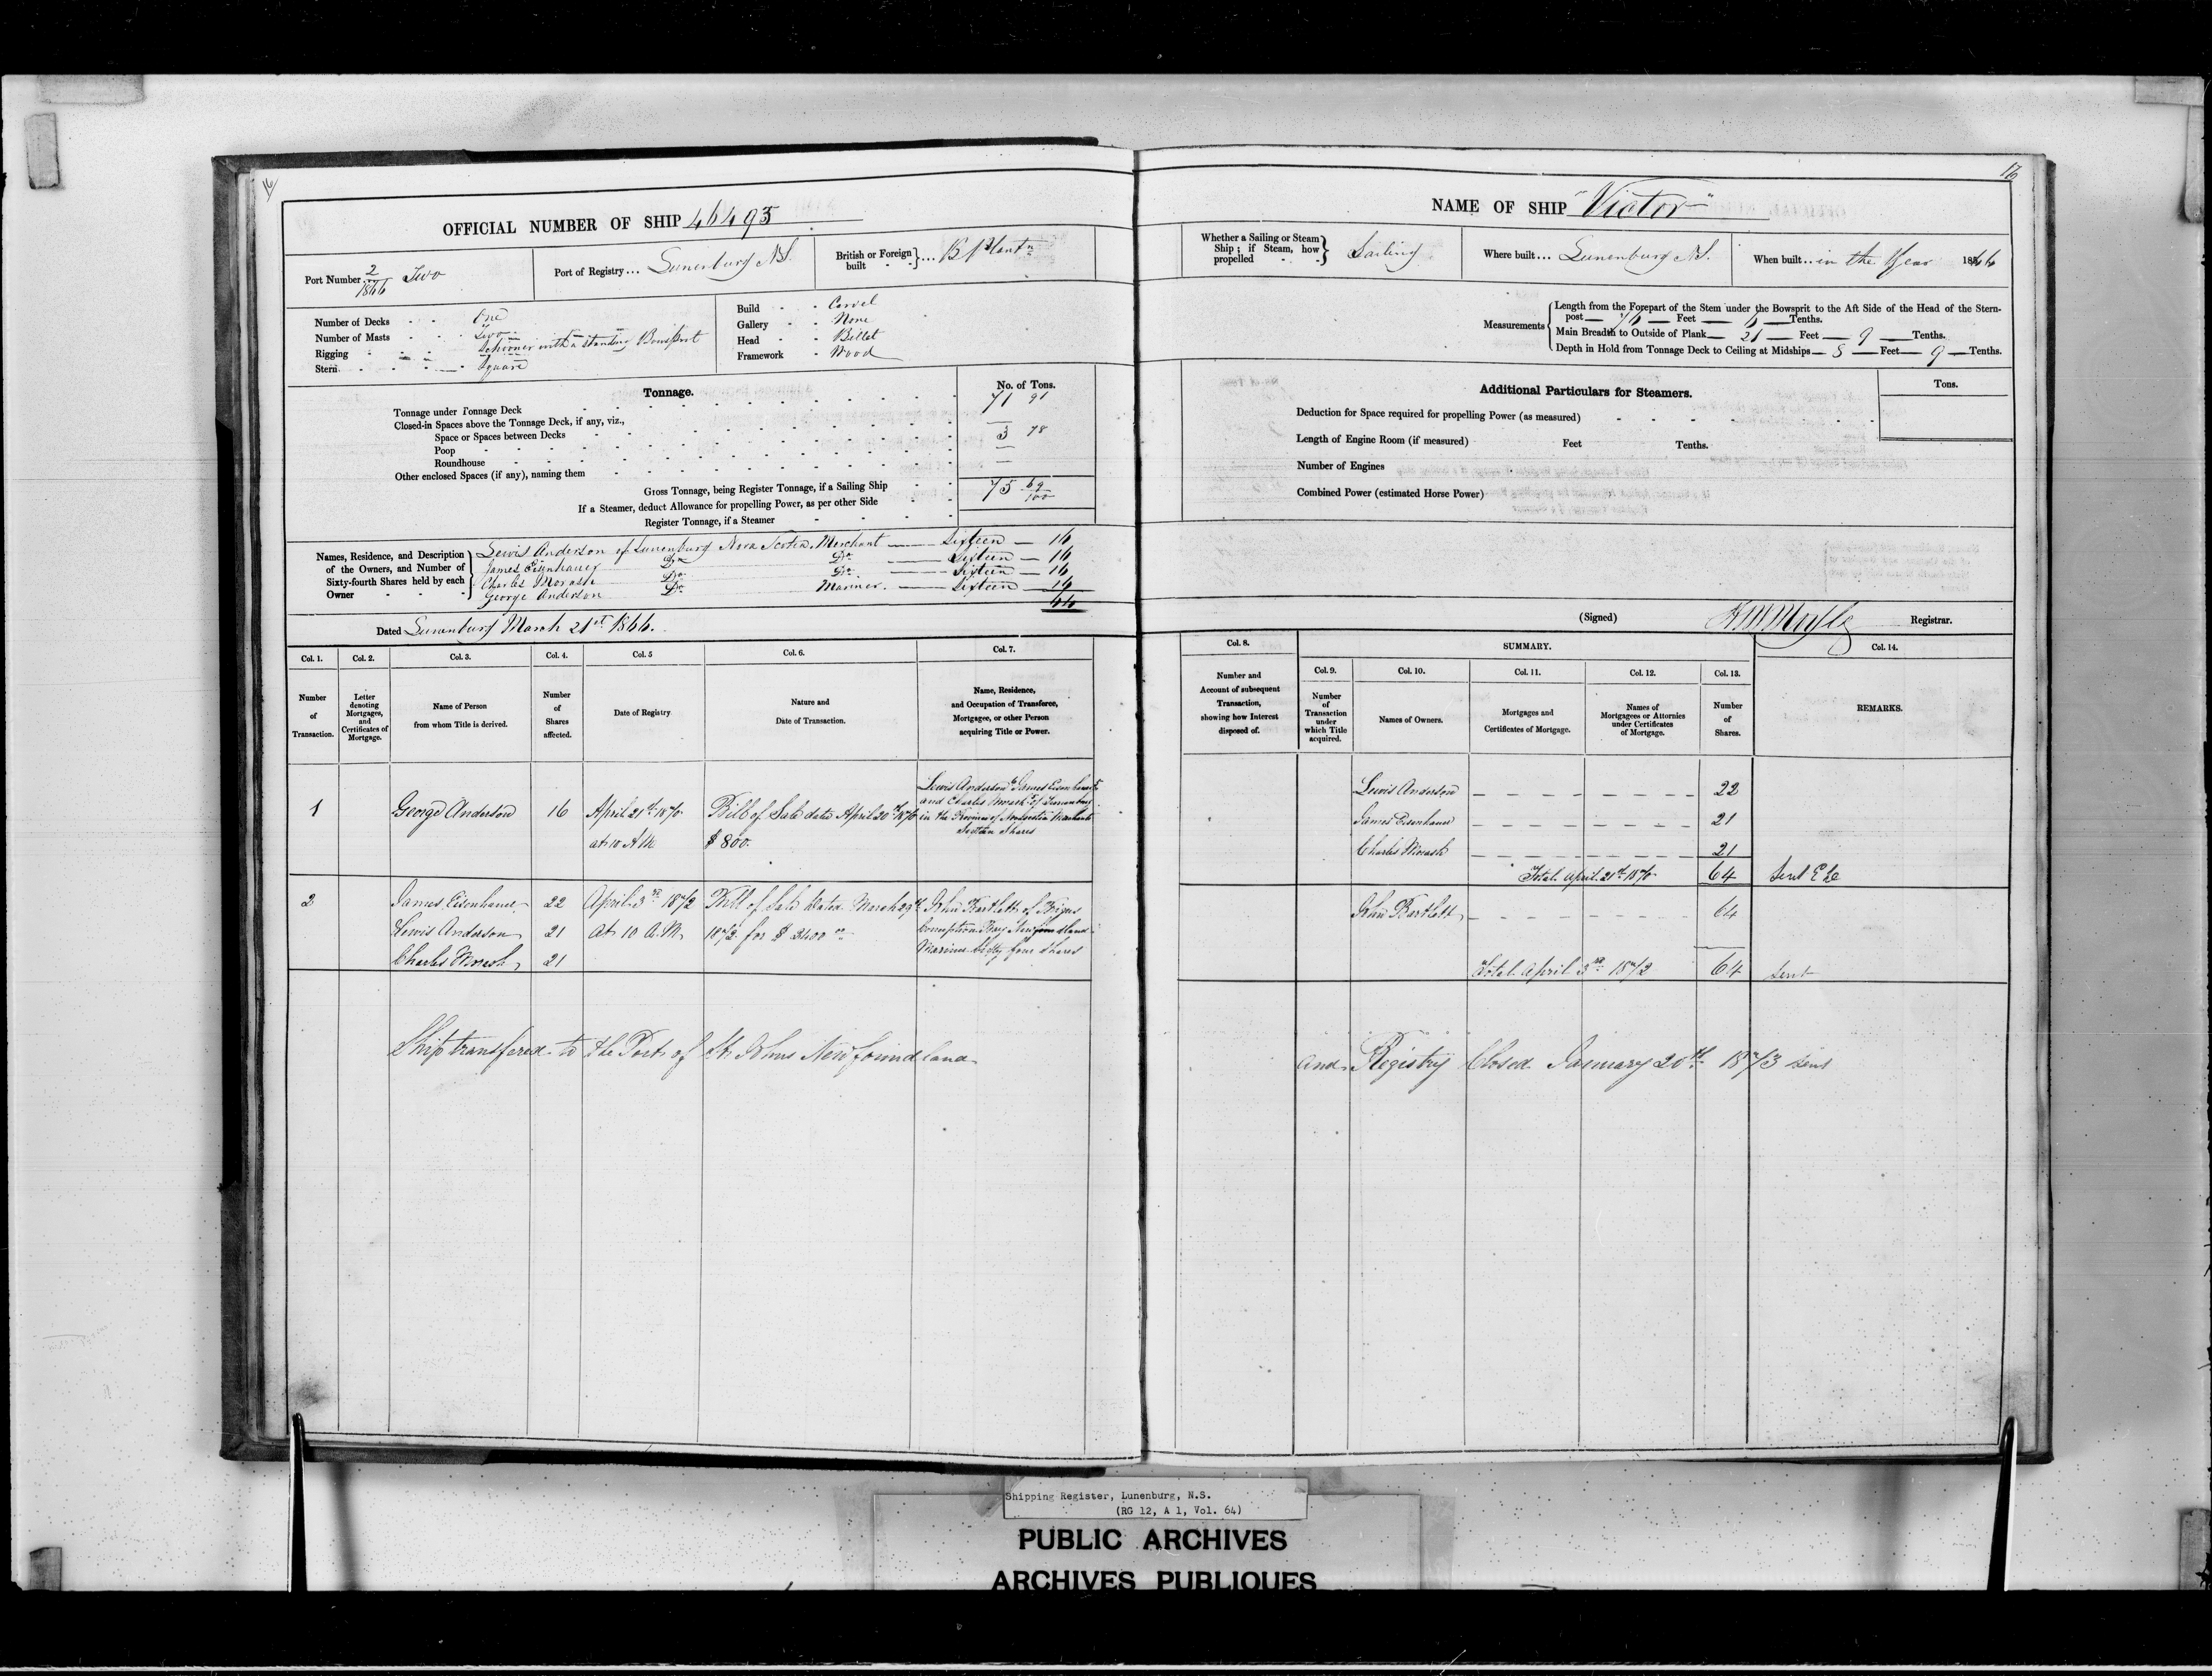 16
OFFICIAL NUMBER OF SHIP 46493
Port Number 2/1866 Two
Port of Registry... Lunenburg N.S.
British or Foreign built } ... B. Plantn
Number of Decks - - One
Number of Masts - - Two
Rigging - - Schooner with a standing Bowsprit
Stern - - Square
Build - - Carvel
Gallery - - None
Head - - Billet
Framework - Wood
Tonnage.
No. of Tons.
Tonnage under Tonnage Deck 71 91
Closed-in Spaces above the Tonnage Deck, if any, viz.,
Space or Spaces between Decks —
Poop 3 78
Roundhouse —
Other enclosed Spaces (if any), naming them —
Gross Tonnage, being Register Tonnage, if a Sailing Ship 75 69/100
If a Steamer, deduct Allowance for propelling Power, as per other Side
Register Tonnage, if a Steamer
Names, Residence, and Description of the Owners, and Number of Sixty-fourth Shares held by each Owner
Lewis Anderson of Lunenburg Nova Scotia Merchant — Sixteen — 16
James Eisenhauer Do Do — Sixteen — 16
Charles Morash Do Do — Sixteen — 16
George Anderson Do Mariner — Sixteen — 16
64
Dated Lunenburg March 21st 1866.
Col. 1. Col. 2. Col. 3. Col. 4. Col. 5 Col. 6. Col. 7.
Number of Transaction.
Letter denoting Mortgages, and Certificates of Mortgage.
Name of Person from whom Title is derived.
Number of Shares affected.
Date of Registry
Nature and Date of Transaction.
Name, Residence, and Occupation of Transferee, Mortgagee, or other Person acquiring Title or Power.
1 George Anderson 16 April 21st 1870 at 10 A M
Bill of Sale dated April 20th 1870
$ 800.
Lewis Anderson James Eisenhauer
and Charles Morash of Lunenburg
in the Province of Novascotia Merchants
Sixteen Shares
2 James Eisenhauer 22 April 3rd 1872 Bill of Sale Dated March 29th John Bartlett of Brigus
Lewis Anderson 21 At 10 A.M. 1872 for $ 2400 00 Conception Bay Newfoundland
Charles Morash 21 Mariner Sixty four Shares
Ship transfered to the Port of St Johns Newfoundland
16
NAME OF SHIP "Victor"
Whether a Sailing or Steam Ship; if Steam, how propelled } Sailing
Where built... Lunenburg N.S.
When built... in the Year 1866
Measurements
Length from the Forepart of the Stem under the Bowsprit to the Aft Side of the Head of the Stern-
post — 76 — Feet — 6 — Tenths.
Main Breadth to Outside of Plank — 21 — Feet — 9 — Tenths.
Depth in Hold from Tonnage Deck to Ceiling at Midships — 8 — Feet — 9 — Tenths.
Additional Particulars for Steamers.
Tons.
Deduction for Space required for propelling Power (as measured)
Length of Engine Room (if measured) Feet Tenths.
Number of Engines
Combined Power (estimated Horse Power)
(Signed) Registrar.
Col. 8. SUMMARY. Col. 14.
Col. 9. Col. 10. Col. 11. Col. 12. Col. 13.
Number and Account of subsequent Transaction, showing how Interest disposed of.
Number of Transaction under which Title acquired.
Names of Owners.
Mortgages and Certificates of Mortgage.
Names of Mortgagees or Attornies under Certificates of Mortgage.
Number of Shares.
REMARKS.
Lewis Anderson 22
James Eisenhauer 21
Charles Morash 21
Total April 21st 1870 64 Sent
John Bartlett 64
Total April 3rd 1872 64 Sent
and Registry Closed January 20th 1873 Sent
Shipping Register, Lunenburg, N.S.
(RG 12, A 1, Vol. 64)
PUBLIC ARCHIVES
ARCHIVES PUBLIQUES